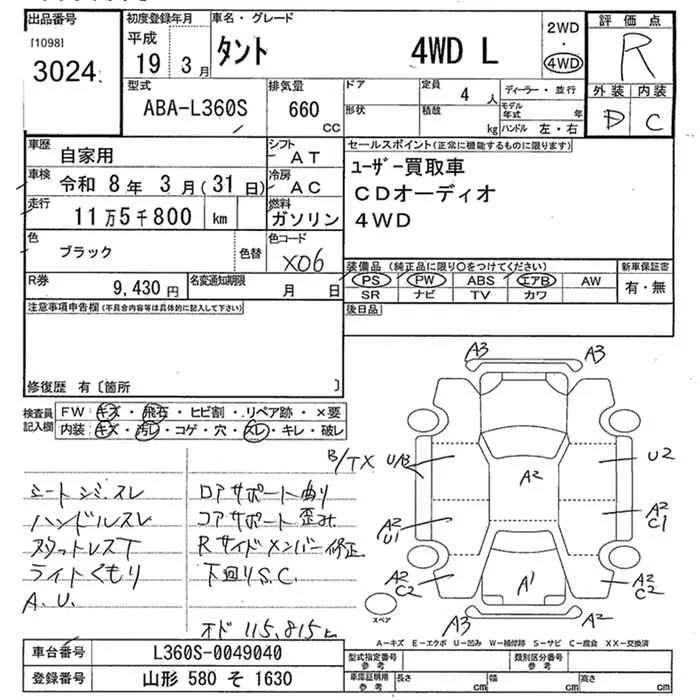 出品番号
[1098]
3024
初度登録年月
平成
19 3月
車名・グレード
タント 4WD L
2WD
・
4WD
評価点
R
外装 内装
D C
型式
ABA-L360S
排気量
660 CC
ドア
形状
定員
4 人
積載
kg
ディーラー・並行
モデル年式 年
ハンドル 左・右
車歴
自家用
シフト
AT
車検
令和 8年 3月(31日)
冷房
AC
走行
11万5千800 km
燃料
ガソリン
色
ブラック
色替
色コード
X06
R券
9,430 円
名変通知期限
月 日
セールスポイント(正常に機能するものに限ります)
ユーザー買取車
CDオーディオ
4WD
装備品(純正品に限り○をつけてください)
PS PW ABS エアB AW
SR ナビ TV カワ
新車保証書
有・無
後日品
注意事項申告欄(不具合内容等は具体的に記入して下さい)
修復歴 有〔箇所 〕
検査員
記入欄
FW キズ・飛石・ヒビ割・リペア跡・×要
内装 キズ・汚レ・コゲ・穴・スレ・キレ・破レ
シートシミ、スレ
ハンドルスレ
スタットレスT
ライトくもり
A.U.
コアサポート曲り
コアサポート歪み
Rサイドメンバー修正
下回りS.C.
オド 115,815 k
B/TX
A3 A3
U/B
U2
A2
A2
U1
A2
C1
A2
C2
A1
A2
C2
A3 A2
スペア
A−キズ E−エクボ U−凹み W−補修跡 S−サビ C−腐食 XX−交換済
車台番号
L360S-0049040
登録番号
山形 580 そ 1630
型式指定番号
参考
類別区分番号
参考
車庫証明用
参考
長さ cm
幅 cm
高さ cm